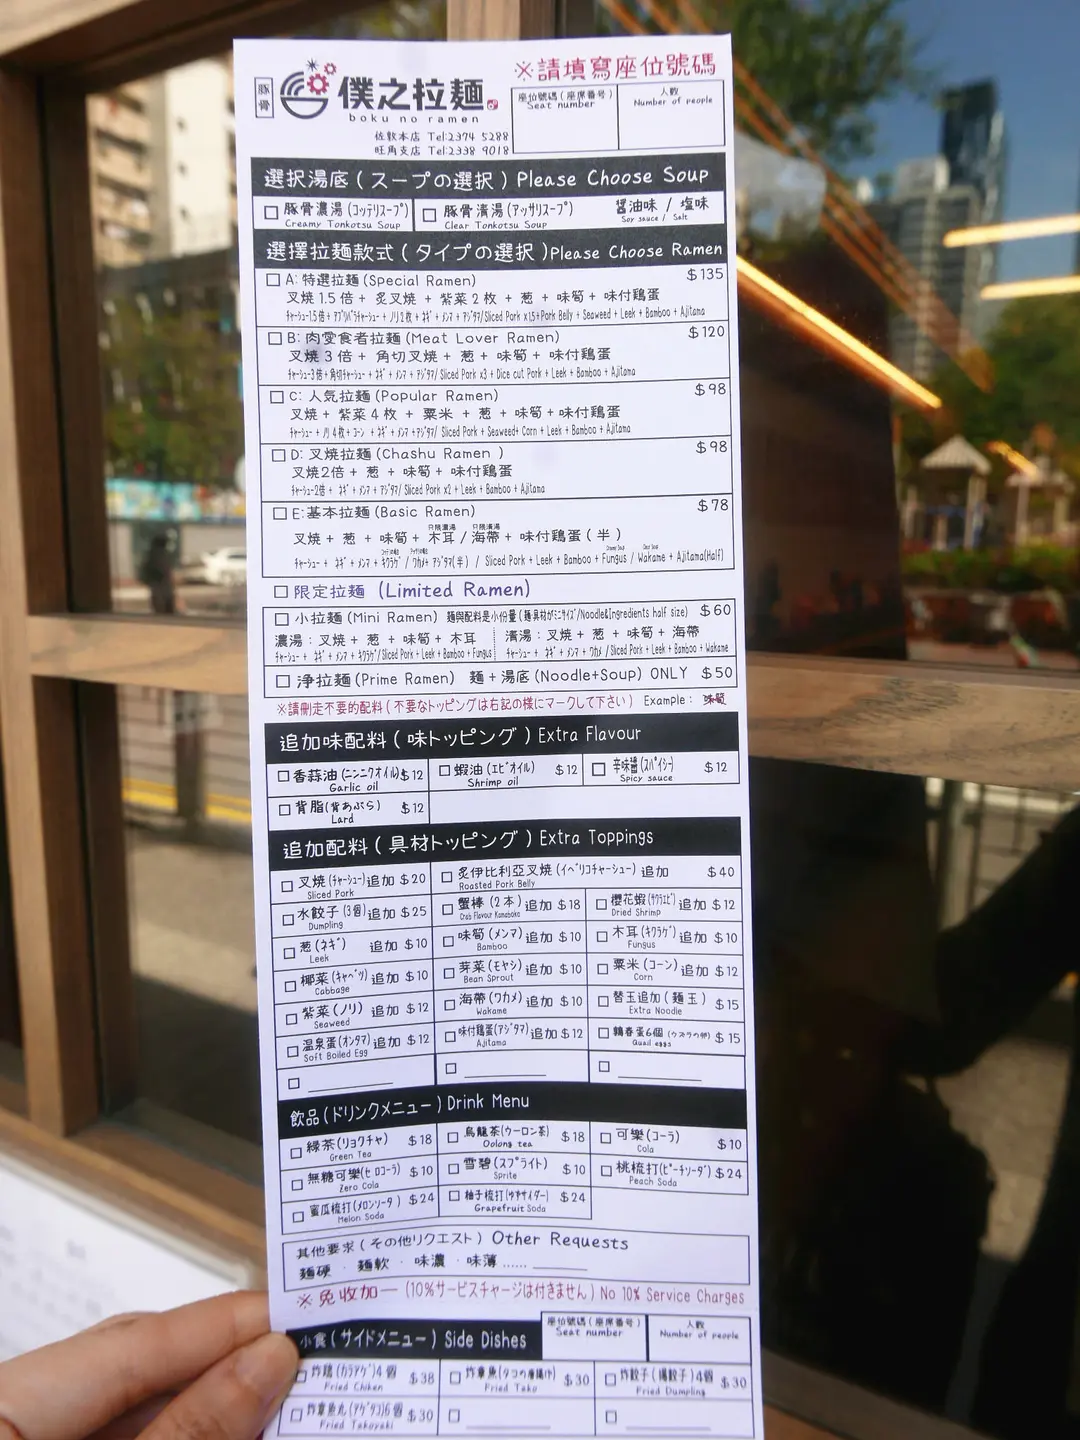 ※請填寫座位號碼
豚骨 僕之拉麵
boku no ramen
佐敦本店 Tel:2374 5288
旺角支店 Tel:2338 9018
座位號碼(座席番号) Seat number
人数 Number of people
選択湯底(スープの選択)Please Choose Soup
□ 豚骨濃湯(コッテリスープ) □ 豚骨清湯(アッサリスープ) 醤油味 / 塩味
Creamy Tonkotsu Soup Clear Tonkotsu Soup Soy sauce / Salt
選擇拉麵款式(タイプの選択)Please Choose Ramen
□ A: 特選拉麵(Special Ramen) $135
叉燒1.5倍 + 炙叉燒 + 紫菜2枚 + 葱 + 味筍 + 味付鶏蛋
チャーシュー1.5倍+アブリバラチャーシュー+ノリ2枚+ネギ+メンマ+アジタマ/Sliced Pork x1.5+Pork Belly + Seaweed + Leek + Bamboo + Ajitama
□ B: 肉愛食者拉麵(Meat Lover Ramen) $120
叉燒3倍 + 角切叉燒 + 葱 + 味筍 + 味付鶏蛋
チャーシュー3倍+角切チャーシュー+ネギ+メンマ+アジタマ/Sliced Pork x3 + Dice cut Pork + Leek + Bamboo + Ajitama
□ C: 人気拉麵(Popular Ramen) $98
叉燒 + 紫菜4枚 + 粟米 + 葱 + 味筍 + 味付鶏蛋
チャーシュー+ノリ4枚+コーン+ネギ+メンマ+アジタマ/Sliced Pork + Seaweed+ Corn + Leek + Bamboo + Ajitama
□ D: 叉燒拉麵(Chashu Ramen ) $98
叉燒2倍 + 葱 + 味筍 + 味付鶏蛋
チャーシュー2倍+ネギ+メンマ+アジタマ/Sliced Pork x2 + Leek + Bamboo + Ajitama
□ E:基本拉麵(Basic Ramen) $78
只限濃湯 只限清湯
叉燒 + 葱 + 味筍 + 木耳 / 海帶 + 味付鶏蛋(半)
チャーシュー + ネギ+メンマ+キクラゲ/ワカメ+アジタマ(半) / Sliced Pork + Leek + Bamboo + Fungus / Wakame + Ajitama(Half)
□ 限定拉麵 (Limited Ramen)
□ 小拉麵(Mini Ramen) 麵與配料是小份量(麺具材がミニサイズ/Noodle&Ingredients half size) $60
濃湯:叉燒 + 葱 + 味筍 + 木耳 清湯:叉燒 + 葱 + 味筍 + 海帶
チャーシュー + ネギ+メンマ+キクラゲ/Sliced Pork + Leek + Bamboo + Fungus チャーシュー + ネギ+メンマ+ワカメ/Sliced Pork + Leek + Bamboo + Wakame
□ 淨拉麵(Prime Ramen) 麵+湯底(Noodle+Soup) ONLY $50
※請刪走不要的配料(不要なトッピングは右記の様にマークして下さい) Example: 味筍
追加味配料(味トッピング)Extra Flavour
□ 香蒜油(ニンニクオイル)$12 □ 蝦油(エビオイル) $12 □ 辛味醤(スパイシー) $12
Garlic oil Shrimp oil Spicy sauce
□ 背脂(背あぶら) $12
Lard
追加配料(具材トッピング)Extra Toppings
□ 叉燒(チャーシュー)追加 $20 □ 炙伊比利亞叉燒(イベリコチャーシュー)追加 $40
Sliced Pork Roasted Pork Belly
□ 水餃子(3個)追加 $25 □ 蟹棒(2本)追加 $18 □ 櫻花蝦(サクラエビ)追加 $12
Dumpling Crab Flavour Kamaboko Dried Shrimp
□ 葱(ネギ) 追加 $10 □ 味筍(メンマ)追加 $10 □ 木耳(キクラゲ)追加 $10
Leek Bamboo Fungus
□ 椰菜(キャベツ)追加 $10 □ 芽菜(モヤシ)追加 $10 □ 粟米(コーン)追加 $12
Cabbage Bean Sprout Corn
□ 紫菜(ノリ)追加 $12 □ 海帶(ワカメ)追加 $10 □ 替玉追加(麵玉) $15
Seaweed Wakame Extra Noodle
□ 温泉蛋(オンタマ)追加 $12 □ 味付鶏蛋(アジタマ)追加 $12 □ 鵪春蛋6個(ウズラの卵) $15
Soft Boiled Egg Ajitama Quail eggs
□ ________ □ ________ □ ________
飲品(ドリンクメニュー)Drink Menu
□ 緑茶(リョクチャ) $18 □ 烏龍茶(ウーロン茶) $18 □ 可樂(コーラ) $10
Green Tea Oolong tea Cola
□ 無糖可樂(ゼロコーラ) $10 □ 雪碧(スプライト) $10 □ 桃梳打(ピーチソーダ) $24
Zero Cola Sprite Peach Soda
□ 蜜瓜梳打(メロンソーダ) $24 □ 柚子梳打(ゆずサイダー) $24
Melon Soda Grapefruit Soda
其他要求(その他リクエスト)Other Requests
麵硬 · 麵軟 · 味濃 · 味薄......________
※ 免收加一 (10%サービスチャージは付きません) No 10% Service Charges
小食(サイドメニュー) Side Dishes
座位號碼(座席番号) Seat number
人数 Number of people
□ 炸鶏(カラアゲ)4個 $38 □ 炸章魚(タコの唐揚げ) $30 □ 炸餃子(揚餃子)4個 $30
Fried Chiken Fried Tako Fried Dumpling
□ 炸章魚丸(アゲタコ)6個 $30 □ ________ □ ________
Fried Takoyaki